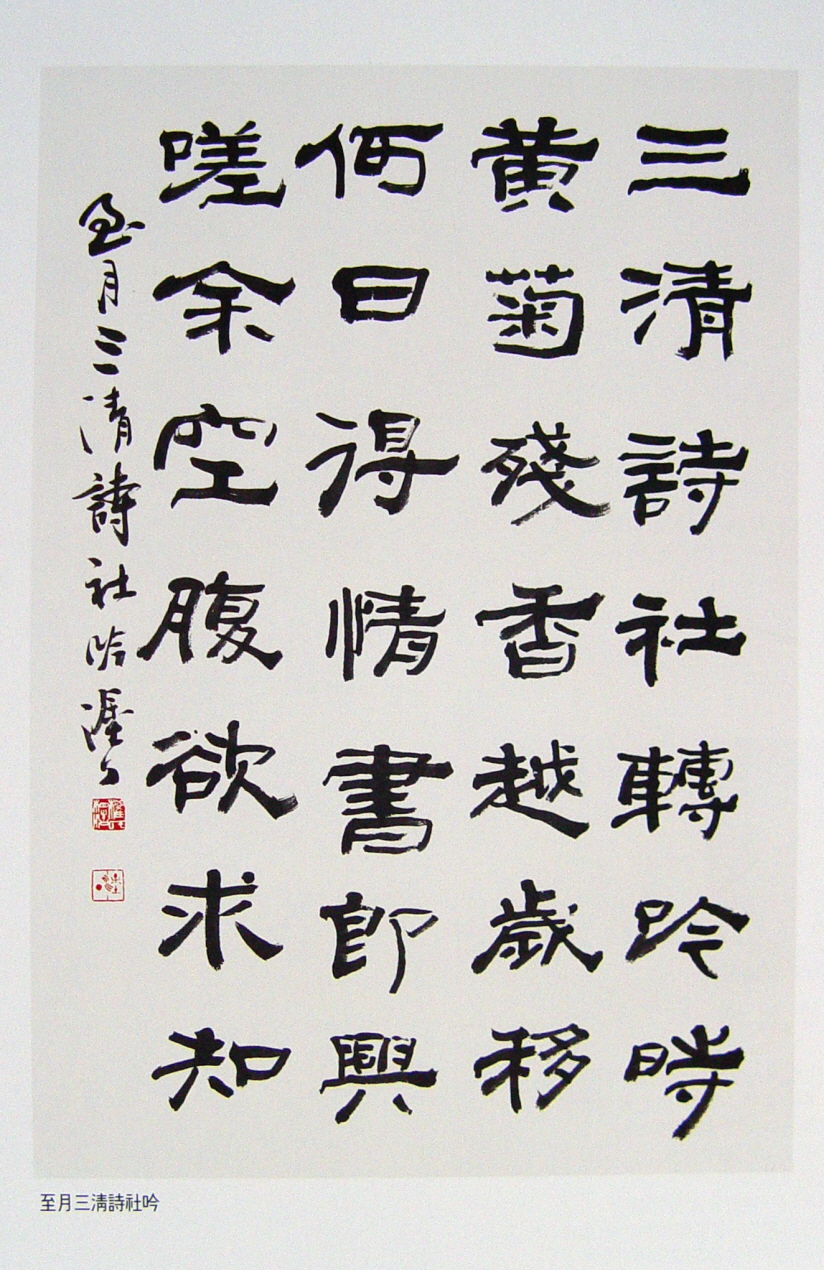 三清詩社轉吟時
黃菊殘香越歲移
何日得情書即興
嗟余空腹欲求知
至月三清詩社吟
至月三淸詩社吟